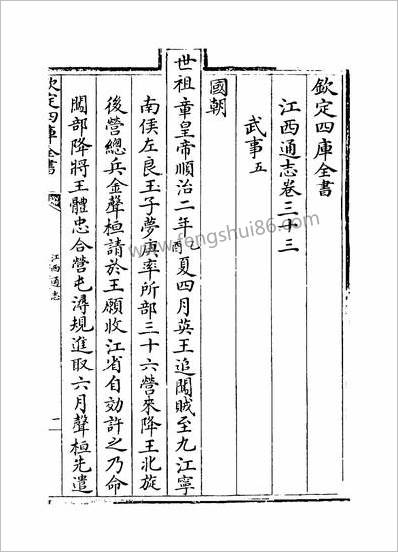 欽定四庫全書
江西通志卷三十三
武事五
國朝
世祖章皇帝順治二年乙酉夏四月英王追闖賊至九江寧
南侯左良玉子夢庚率所部三十六營來降王北旋
後營總兵金聲桓請於王願收江省自効許之乃命
闖部降將王體忠合營屯潯規進取六月聲桓先遣
欽定四庫全書
江西通志
一
www.fengshui86.com